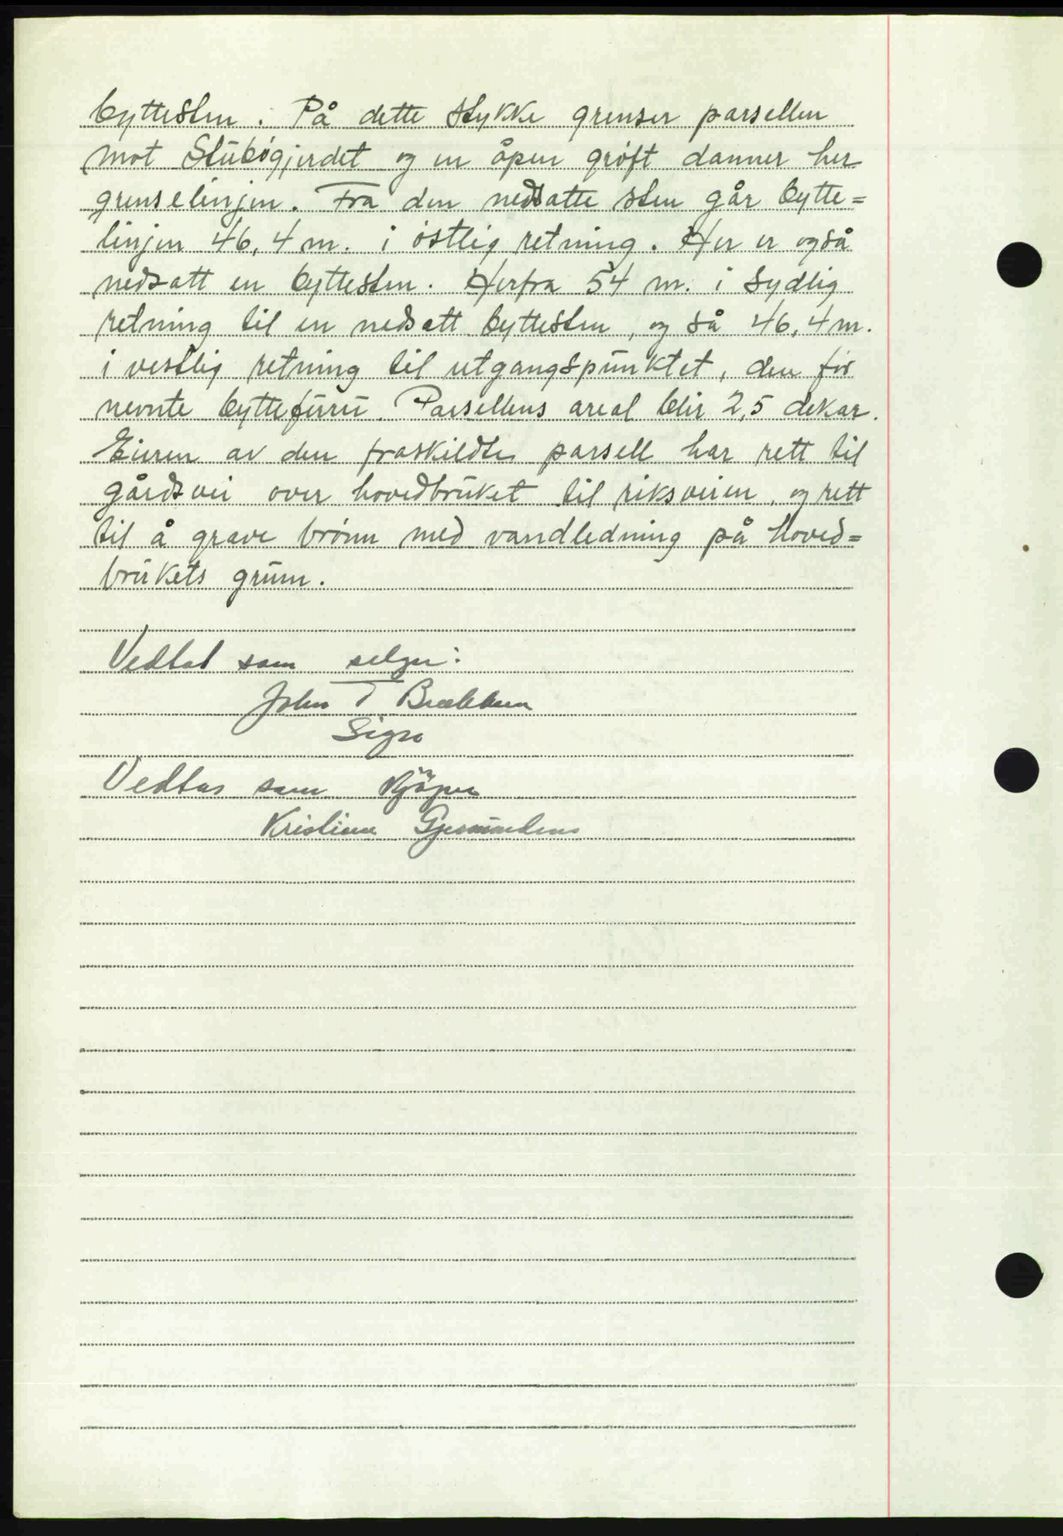 byttesten. På dette stykke grenser parsellen
mot Stubøgjerdet og en åpen grøft danner her
grenselinjen. Fra den nedsatte sten går bytte=
linjen 46,4 m. i østlig retning. Her er også
nedsatt en byttesten. Herfra 54 m. i sydlig
retning til en nedsatt byttesten, og så 46,4 m.
i vestlig retning til utgangspunktet, den før
nevnte byttefuru. Parsellens areal blir 2,5 dekar.
Eieren av den fraskildte parsell har rett til
gårdsvei over hovedbruket til riksveien, og rett
til å grave brønn med vandledning på Hoved=
brukets grunn.
Vedtat som selger:
John T Brækken
Sign
Vedtas som kjøper
Kristian